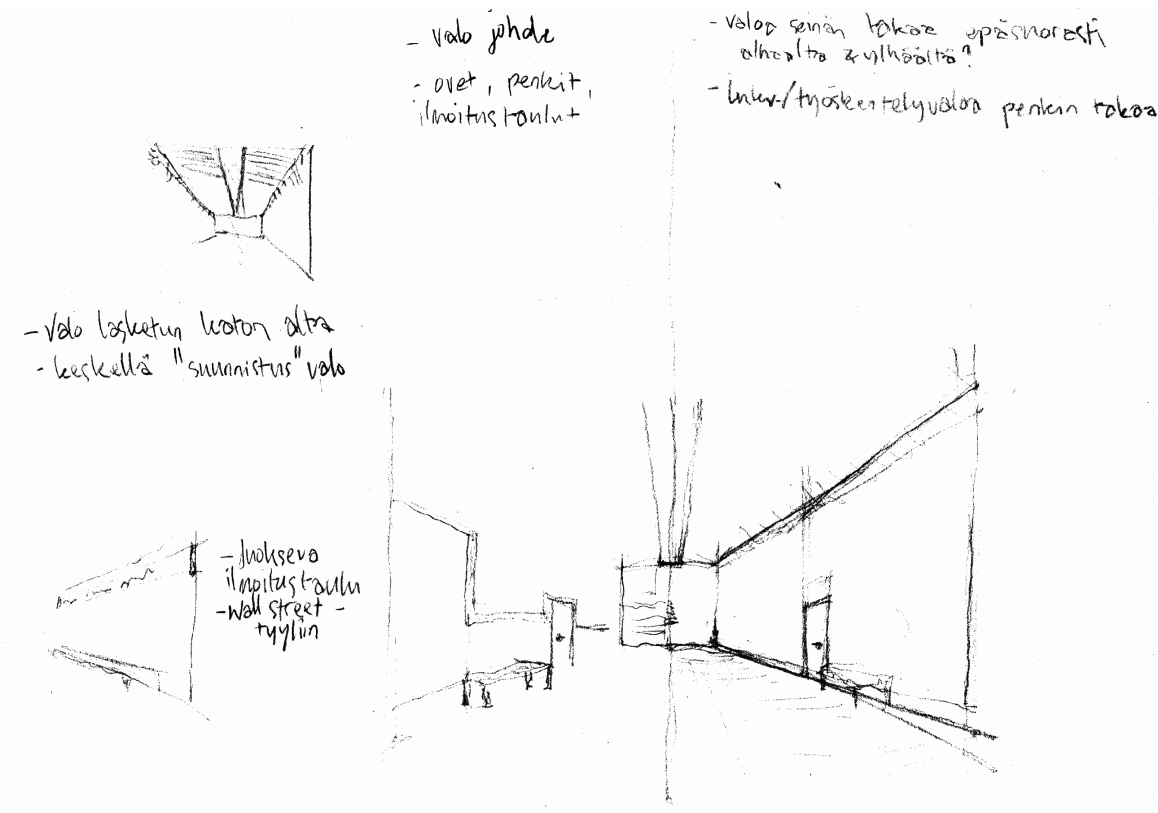 - valo johde
- ovet, penkit,
ilmoitustaulut
- valoa seinän takaa epäsuorasti
alhaalta & ylhäältä?
- luku-/työskentelyvaloa penkin takaa
- Valo lasketun katon alta
- keskellä "suunnistus" valo
- Juokseva
ilmoitustaulu
- Wall street -
tyyliin